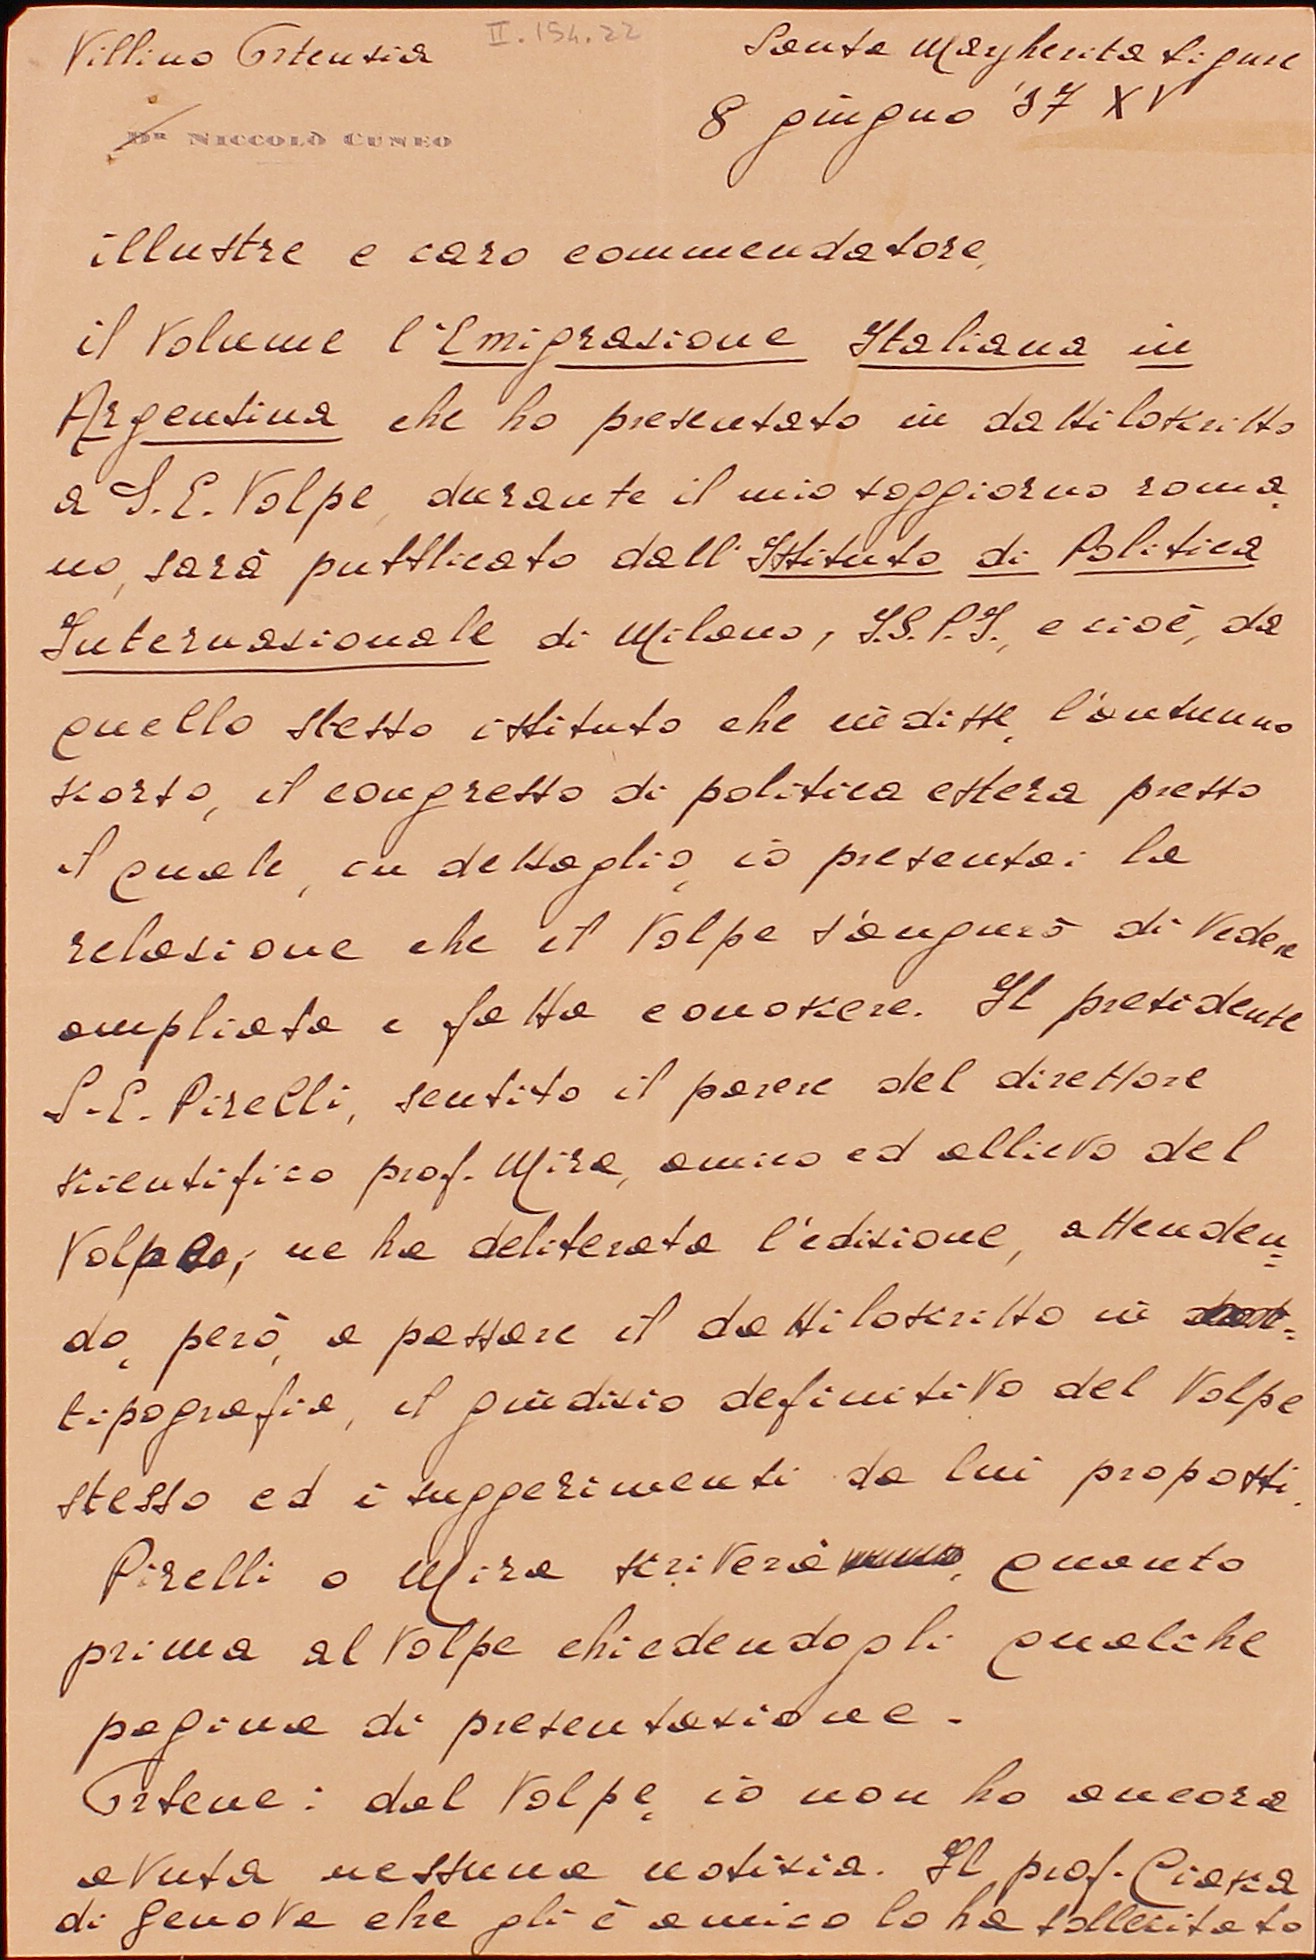 Villino Ortensia
II.154.22
Santa Margherita Ligure
8 giugno '37 XV
Dr NICCOLÒ CUNEO
illustre e caro commendatore,
il volume l'Emigrazione Italiana in
Argentina che ho presentato in dattiloscritto
a S.E. Volpe, durante il mio soggiorno roma-
no, sarà pubblicato dall'Istituto di Politica
Internazionale di Milano, I.S.P.I., e cioè, da
quello stesso istituto che indisse, l'autunno
scorso, il congresso di politica estera presso
il quale, in dettaglio, io presentai la
relazione che il Volpe s'augurò di vedere
ampliata e fatta conoscere. Il presidente
S.E. Pirelli, sentito il parere del direttore
scientifico prof. Mira, amico ed allievo del
Volpe, ne ha deliberata l'edizione, attenden=
do, però, a passare il dattiloscritto in
tipografia, il giudizio definitivo del Volpe
stesso ed i suggerimenti da lui proposti.
Pirelli o Mira scriverà, quanto
prima al Volpe chiedendogli qualche
pagina di presentazione.
Ortene: dal Volpe, io non ho ancora
avuta nessuna notizia. Il prof.
di Genova che gli è amico lo ha sollecitato